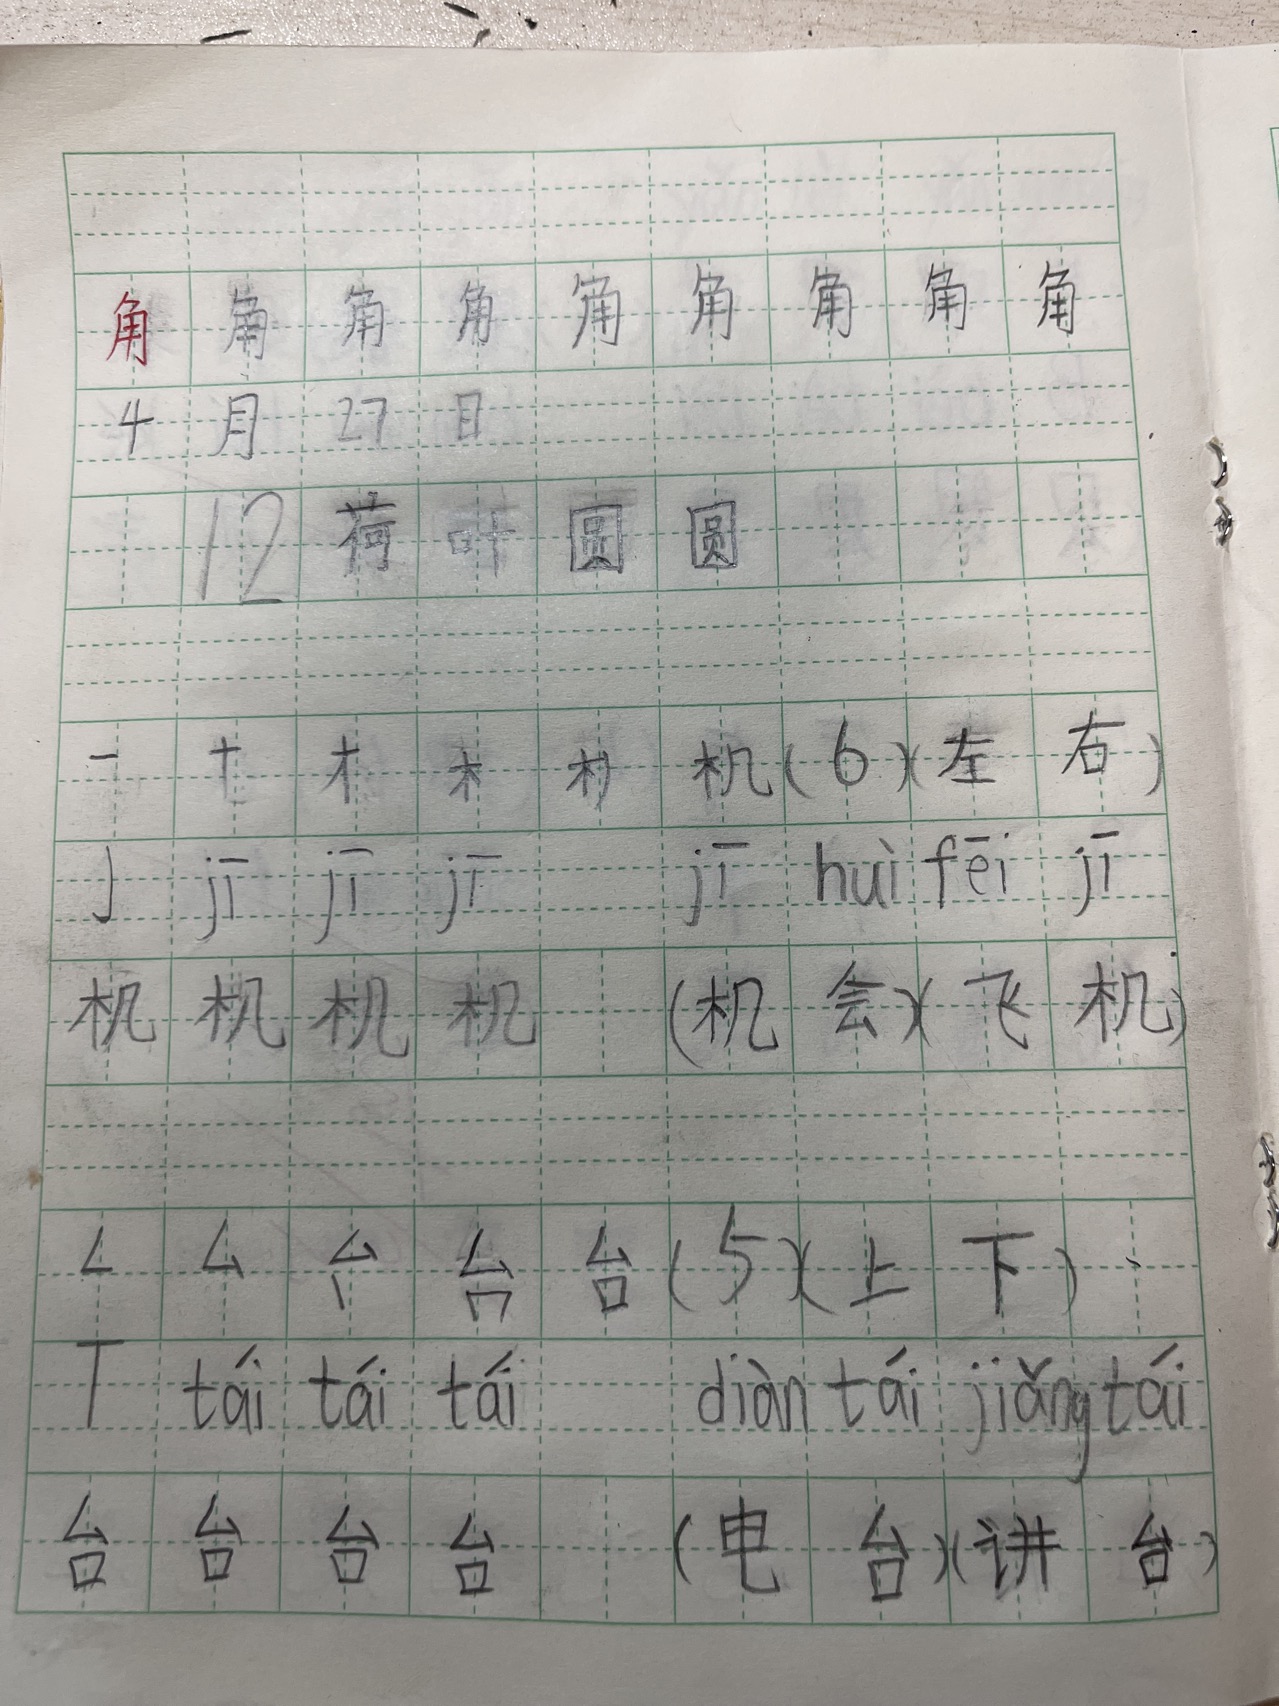 角 角 角 角 角 角 角 角 角
4 月 27 日
12 荷 叶 圆 圆
一 十 才 木 朾 机 (6) (左 右)
jī jī jī jī huì fēi jī
机 机 机 机 (机 会) (飞 机)
厶 台 台 (5) (上 下)
T tái tái tái diàn tái jiǎng tái
台 台 台 台 (电 台) (讲 台)